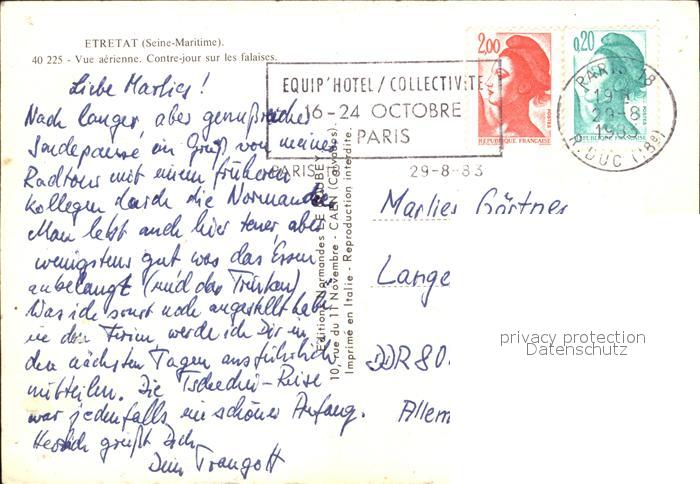 ETRETAT (Seine-Maritime).
40 225 - Vue aérienne. Contre-jour sur les falaises.
Liebe Marlies!
Nach langer aber genußreicher
Sendepause ein Gruß von meiner
Radtour mit einem früheren
Kollegen durch die Normandie.
Man lebt auch hier teuer, aber
wenigstens gut was das Essen
anbelangt (und das Trinken).
Was ich sonst noch angestellt habe
in den Ferien, werde ich Dir in
den nächsten Tagen ausführlich
mitteilen. Die Tschechei-Reise
war jedenfalls ein schöner Anfang.
Herzlich grüßt Dich
Dein Traugott
EQUIP'HOTEL/COLLECTIVITE
16-24 OCTOBRE
PARIS
PARIS
29-8-83
2,00
POSTES
REPUBLIQUE FRANÇAISE
0,20
POSTES
REPUBLIQUE FRANÇAISE
PARIS 18
19H
29-8
R.DUC (18e)
Editions Normandes LE GOUBEY
10, rue du 11 Novembre - CAEN (Calvados)
Imprimé en Italie - Reproduction interdite.
Marlies Gärtner
Lange
DDR 80
Allem
privacy protection
Datenschutz